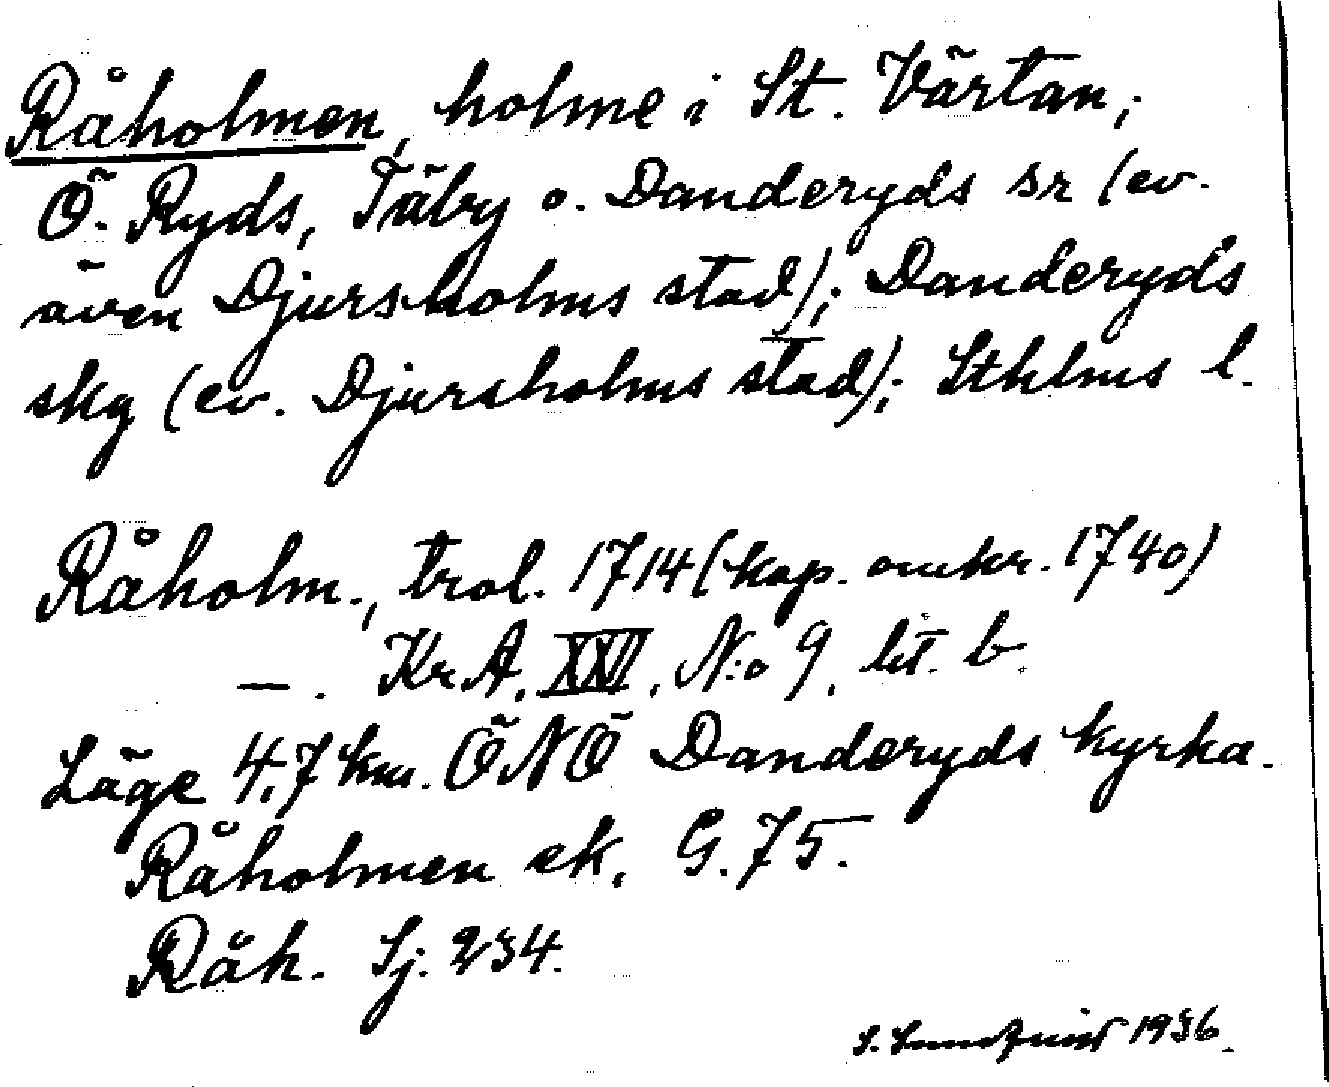 Råholmen, holme i St. Värtan;
Ö. Ryds, Täby o. Danderyds sr (ev.
även Djursholms stad); Danderyds
skg (ev. Djursholms stad); Sthlms l.
Råholm., trol. 1714 (kop. omkr. 1740)
—. KrA. XXVI, N:o 9, lit. b.
Läge 4,7 km. ÖNÖ Danderyds kyrka.
Råholmen ek. G. 75.
Råh. Sj. 234.
S. 1936.